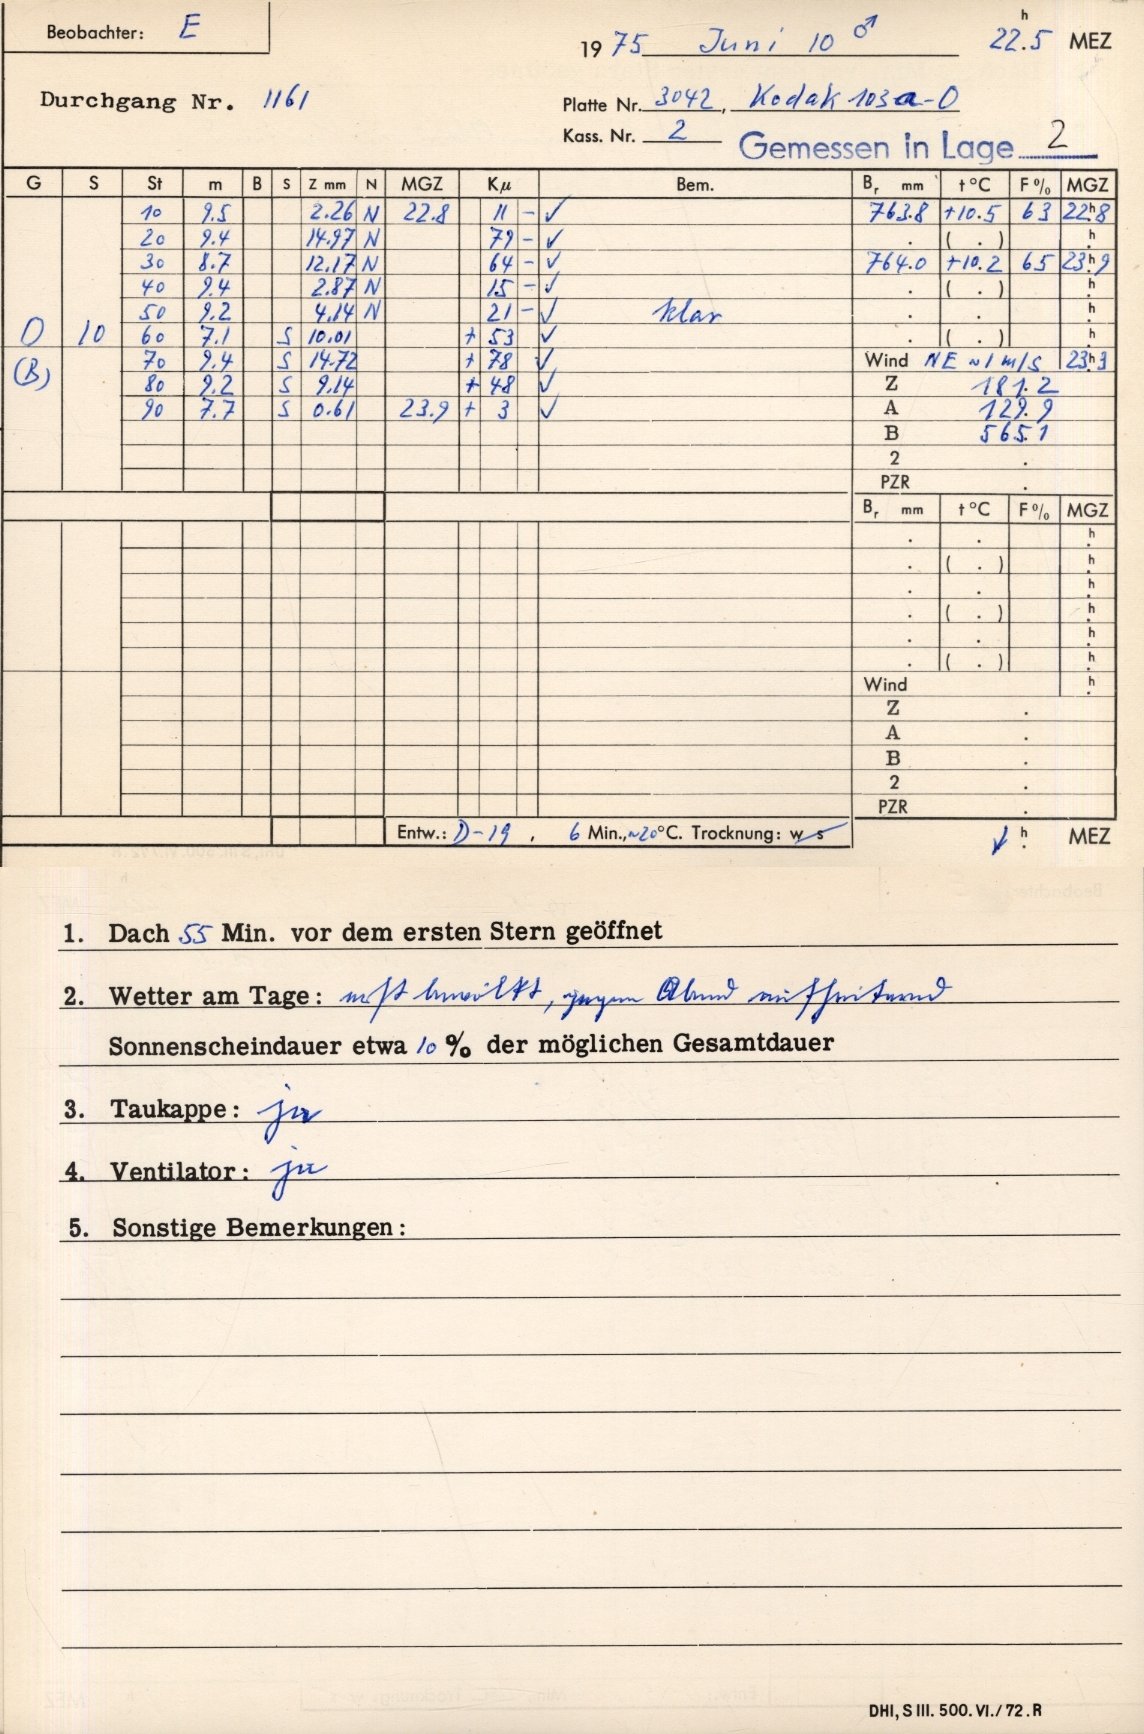 Beobachter: E
1975 Juni 10 ♂ 22.5 h MEZ
Durchgang Nr. 1161
Platte Nr. 3042, Kodak 103a-O
Kass. Nr. 2
Gemessen in Lage 2
G S St m B S Z mm N MGZ Kμ Bem. Br mm t °C F % MGZ
10 9.5 2.26 N 22.8 11 - ✓ 763.8 +10.5 63 22h8
20 9.4 14.97 N 79 - ✓ . ( . ) h.
30 8.7 12.17 N 64 - ✓ 764.0 +10.2 65 23h9
40 9.4 2.87 N 15 - ✓ . ( . ) h.
50 9.2 4.14 N 21 - ✓ klar . . h.
O 10 60 7.1 S 10.01 + 53 ✓ . ( . ) h.
(B) 70 9.4 S 14.72 + 78 ✓ Wind NE ~1 m/s 23h3
80 9.2 S 9.14 + 48 ✓ Z 181.2
90 7.7 S 0.61 23.9 + 3 ✓ A 129.9
B 565.1
2 .
PZR .
Br mm t °C F % MGZ
. . h.
. ( . ) h.
. . h.
. ( . ) h.
. . h.
. ( . ) h.
Wind h.
Z .
A .
B .
2 .
PZR .
Entw.: D-19 , 6 Min., ~20°C. Trocknung: w s
h. MEZ
1. Dach 55 Min. vor dem ersten Stern geöffnet
2. Wetter am Tage: meist bewölkt, gegen Abend aufheiternd
Sonnenscheindauer etwa 10 % der möglichen Gesamtdauer
3. Taukappe: ja
4. Ventilator: ja
5. Sonstige Bemerkungen:
DHI, S III. 500. VI./72. R